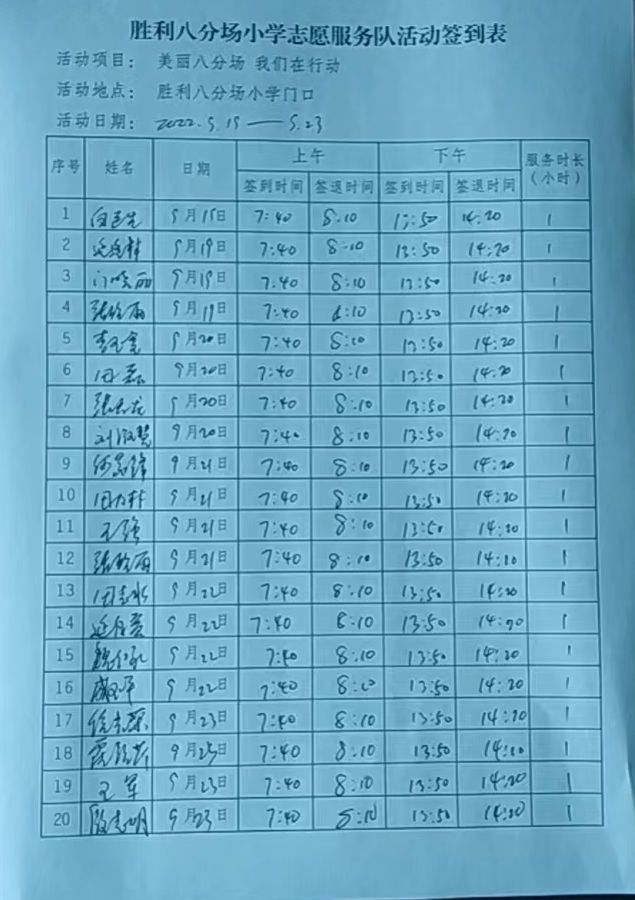 胜利八分场小学志愿服务队活动签到表
活动项目： 美丽八分场 我们在行动
活动地点： 胜利八分场小学门口
活动日期： 2022.9.19——9.23
上午 下午
序号 姓名 日期 签到时间 签退时间 签到时间 签退时间 服务时长（小时）
1 9月19日 7:40 8:10 13:50 14:20 1
2 9月19日 7:40 8:10 13:50 14:20 1
3 9月19日 7:40 8:10 13:50 14:20 1
4 张皓雨 9月19日 7:40 8:10 13:50 14:20 1
5 9月20日 7:40 8:10 13:50 14:20 1
6 田磊 9月20日 7:40 8:10 13:50 14:20 1
7 张志龙 9月20日 7:40 8:10 13:50 14:20 1
8 刘淑慧 9月20日 7:40 8:10 13:50 14:20 1
9 9月21日 7:40 8:10 13:50 14:20 1
10 9月21日 7:40 8:10 13:50 14:20 1
11 王强 9月21日 7:40 8:10 13:50 14:20 1
12 张皓雨 9月21日 7:40 8:10 13:50 14:20 1
13 田志水 9月22日 7:40 8:10 13:50 14:20 1
14 9月22日 7:40 8:10 13:50 14:20 1
15 9月22日 7:40 8:10 13:50 14:20 1
16 9月22日 7:40 8:10 13:50 14:20 1
17 9月23日 7:40 8:10 13:50 14:20 1
18 9月23日 7:40 8:10 13:50 14:20 1
19 王军 9月23日 7:40 8:10 13:50 14:20 1
20 殷志明 9月23日 7:40 8:10 13:50 14:20 1